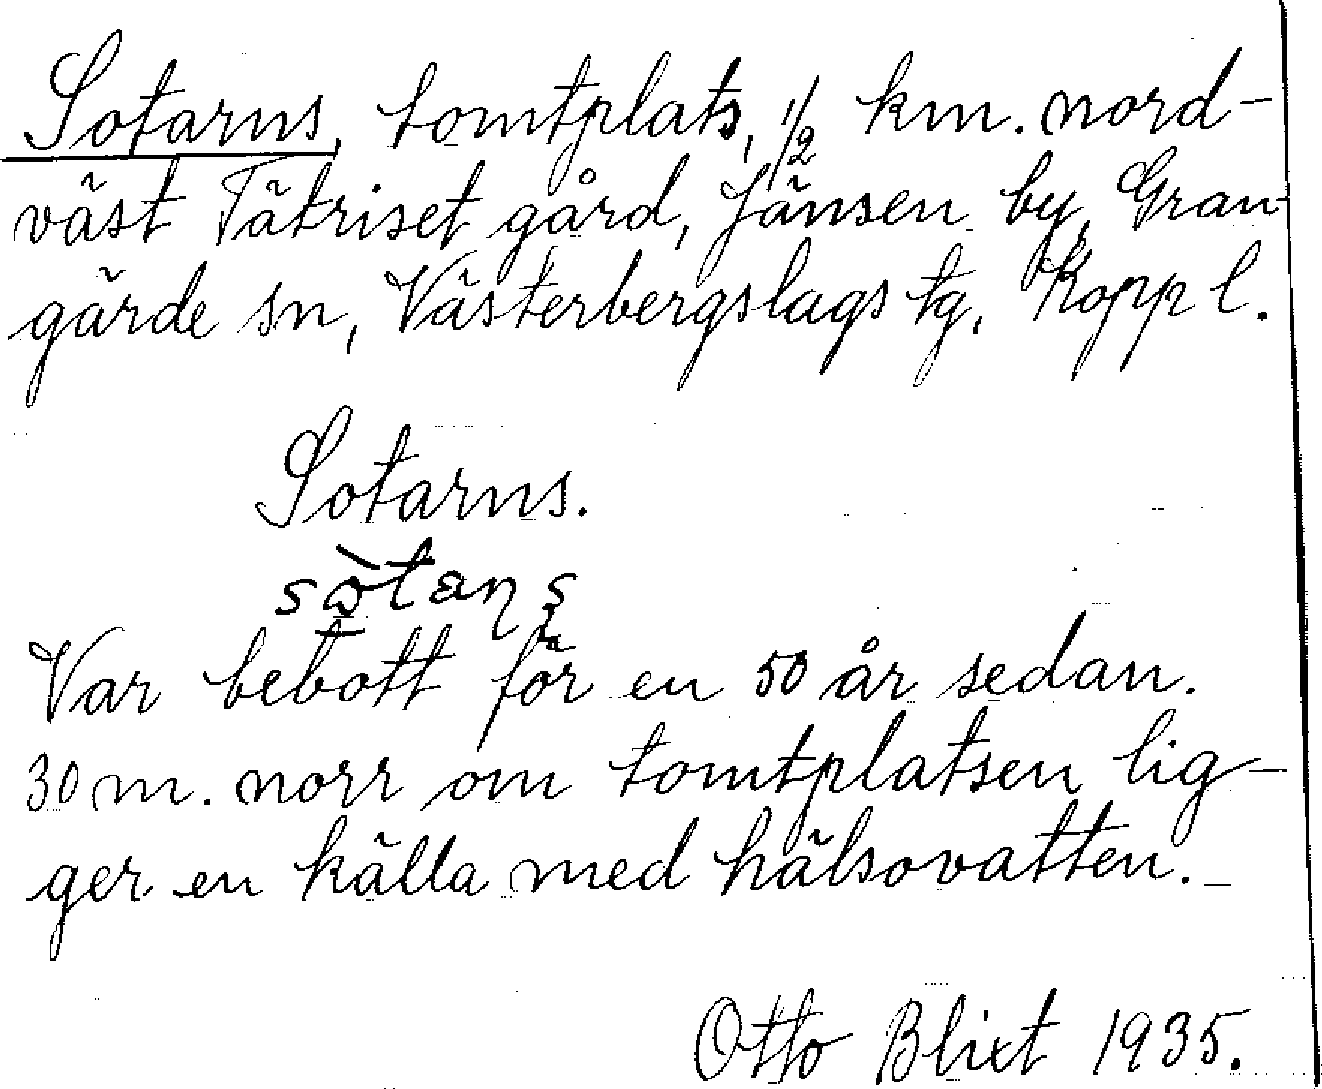 Sotarns, tomtplats, 1/2 km. nord-
väst Tätriset gård, Jänsen by, Gran-
gärde sn, Västerbergslags tg. Kopp l.
Sotarns.
Var bebott för en 50 år sedan.
30 m. norr om tomtplatsen lig-
ger en källa med hälsovatten.
Otto Blixt 1935.